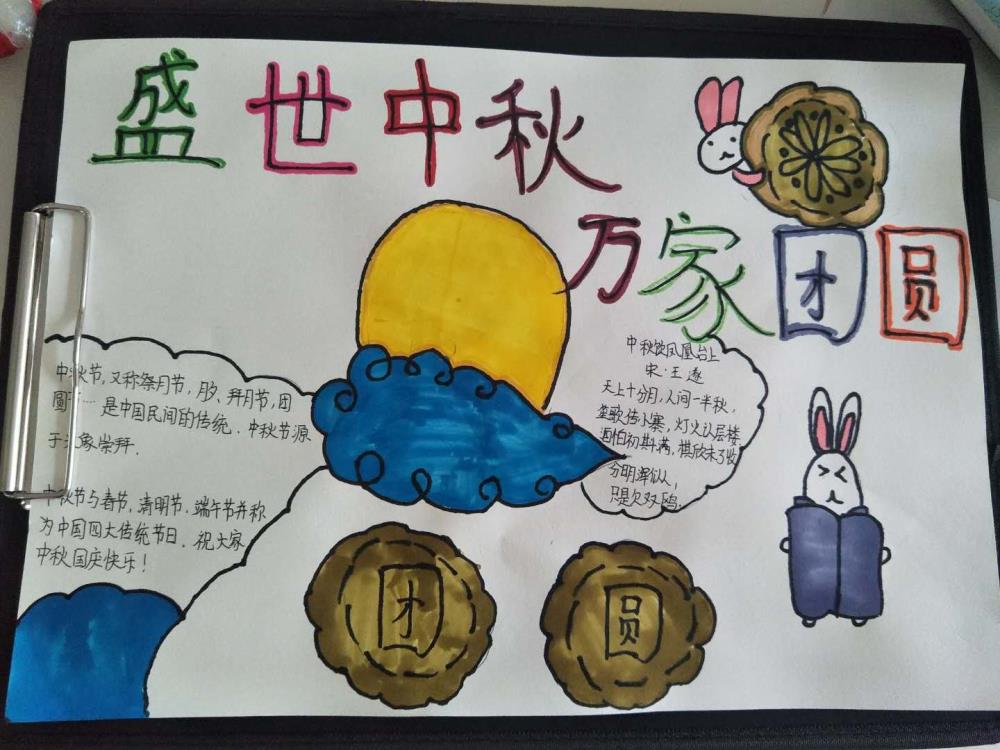 盛世中秋
万家团圆
中秋节,又称祭月节,月夕、拜月节,团
圆 …… 是中国民间的传统.中秋节源
于 象崇拜.
秋节与春节,清明节.端午节并称
为中国四大传统节日.祝大家
中秋国庆快乐!
中秋饮凤凰台上
宋·王遂
天上十分月,人间一半秋,
笙歌传小寨,灯火认层楼
怕初期满,棋欣未了收
分明浑似人,
只是欠双鸥.
团
圆